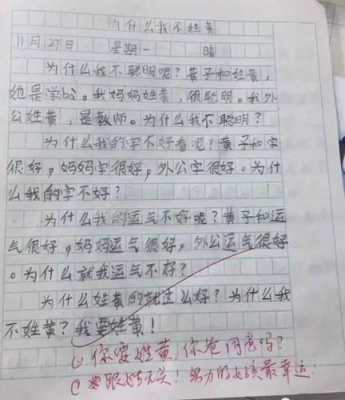 为什么我不姓黄
11月27日 星期一 晴
为什么我不聪明呢？黄子和姓黄，
她是学ba。我妈妈姓黄，很聪明。我外
公姓黄，是教师。为什么我不聪明？
为什么我的字不好看呢！黄子和字
很好，妈妈字很好，外公字很好。为什
么我的字不好？
为什么我的运气不好呢？黄子和运
气很好，妈妈运气很好，外公运气很好
。为什么就我运气不好？
为什么姓黄的就这么好？为什么我
不姓黄？我要姓黄！
你要姓黄，你爸同意吗？
跟姓无关！努力的女孩最幸运.